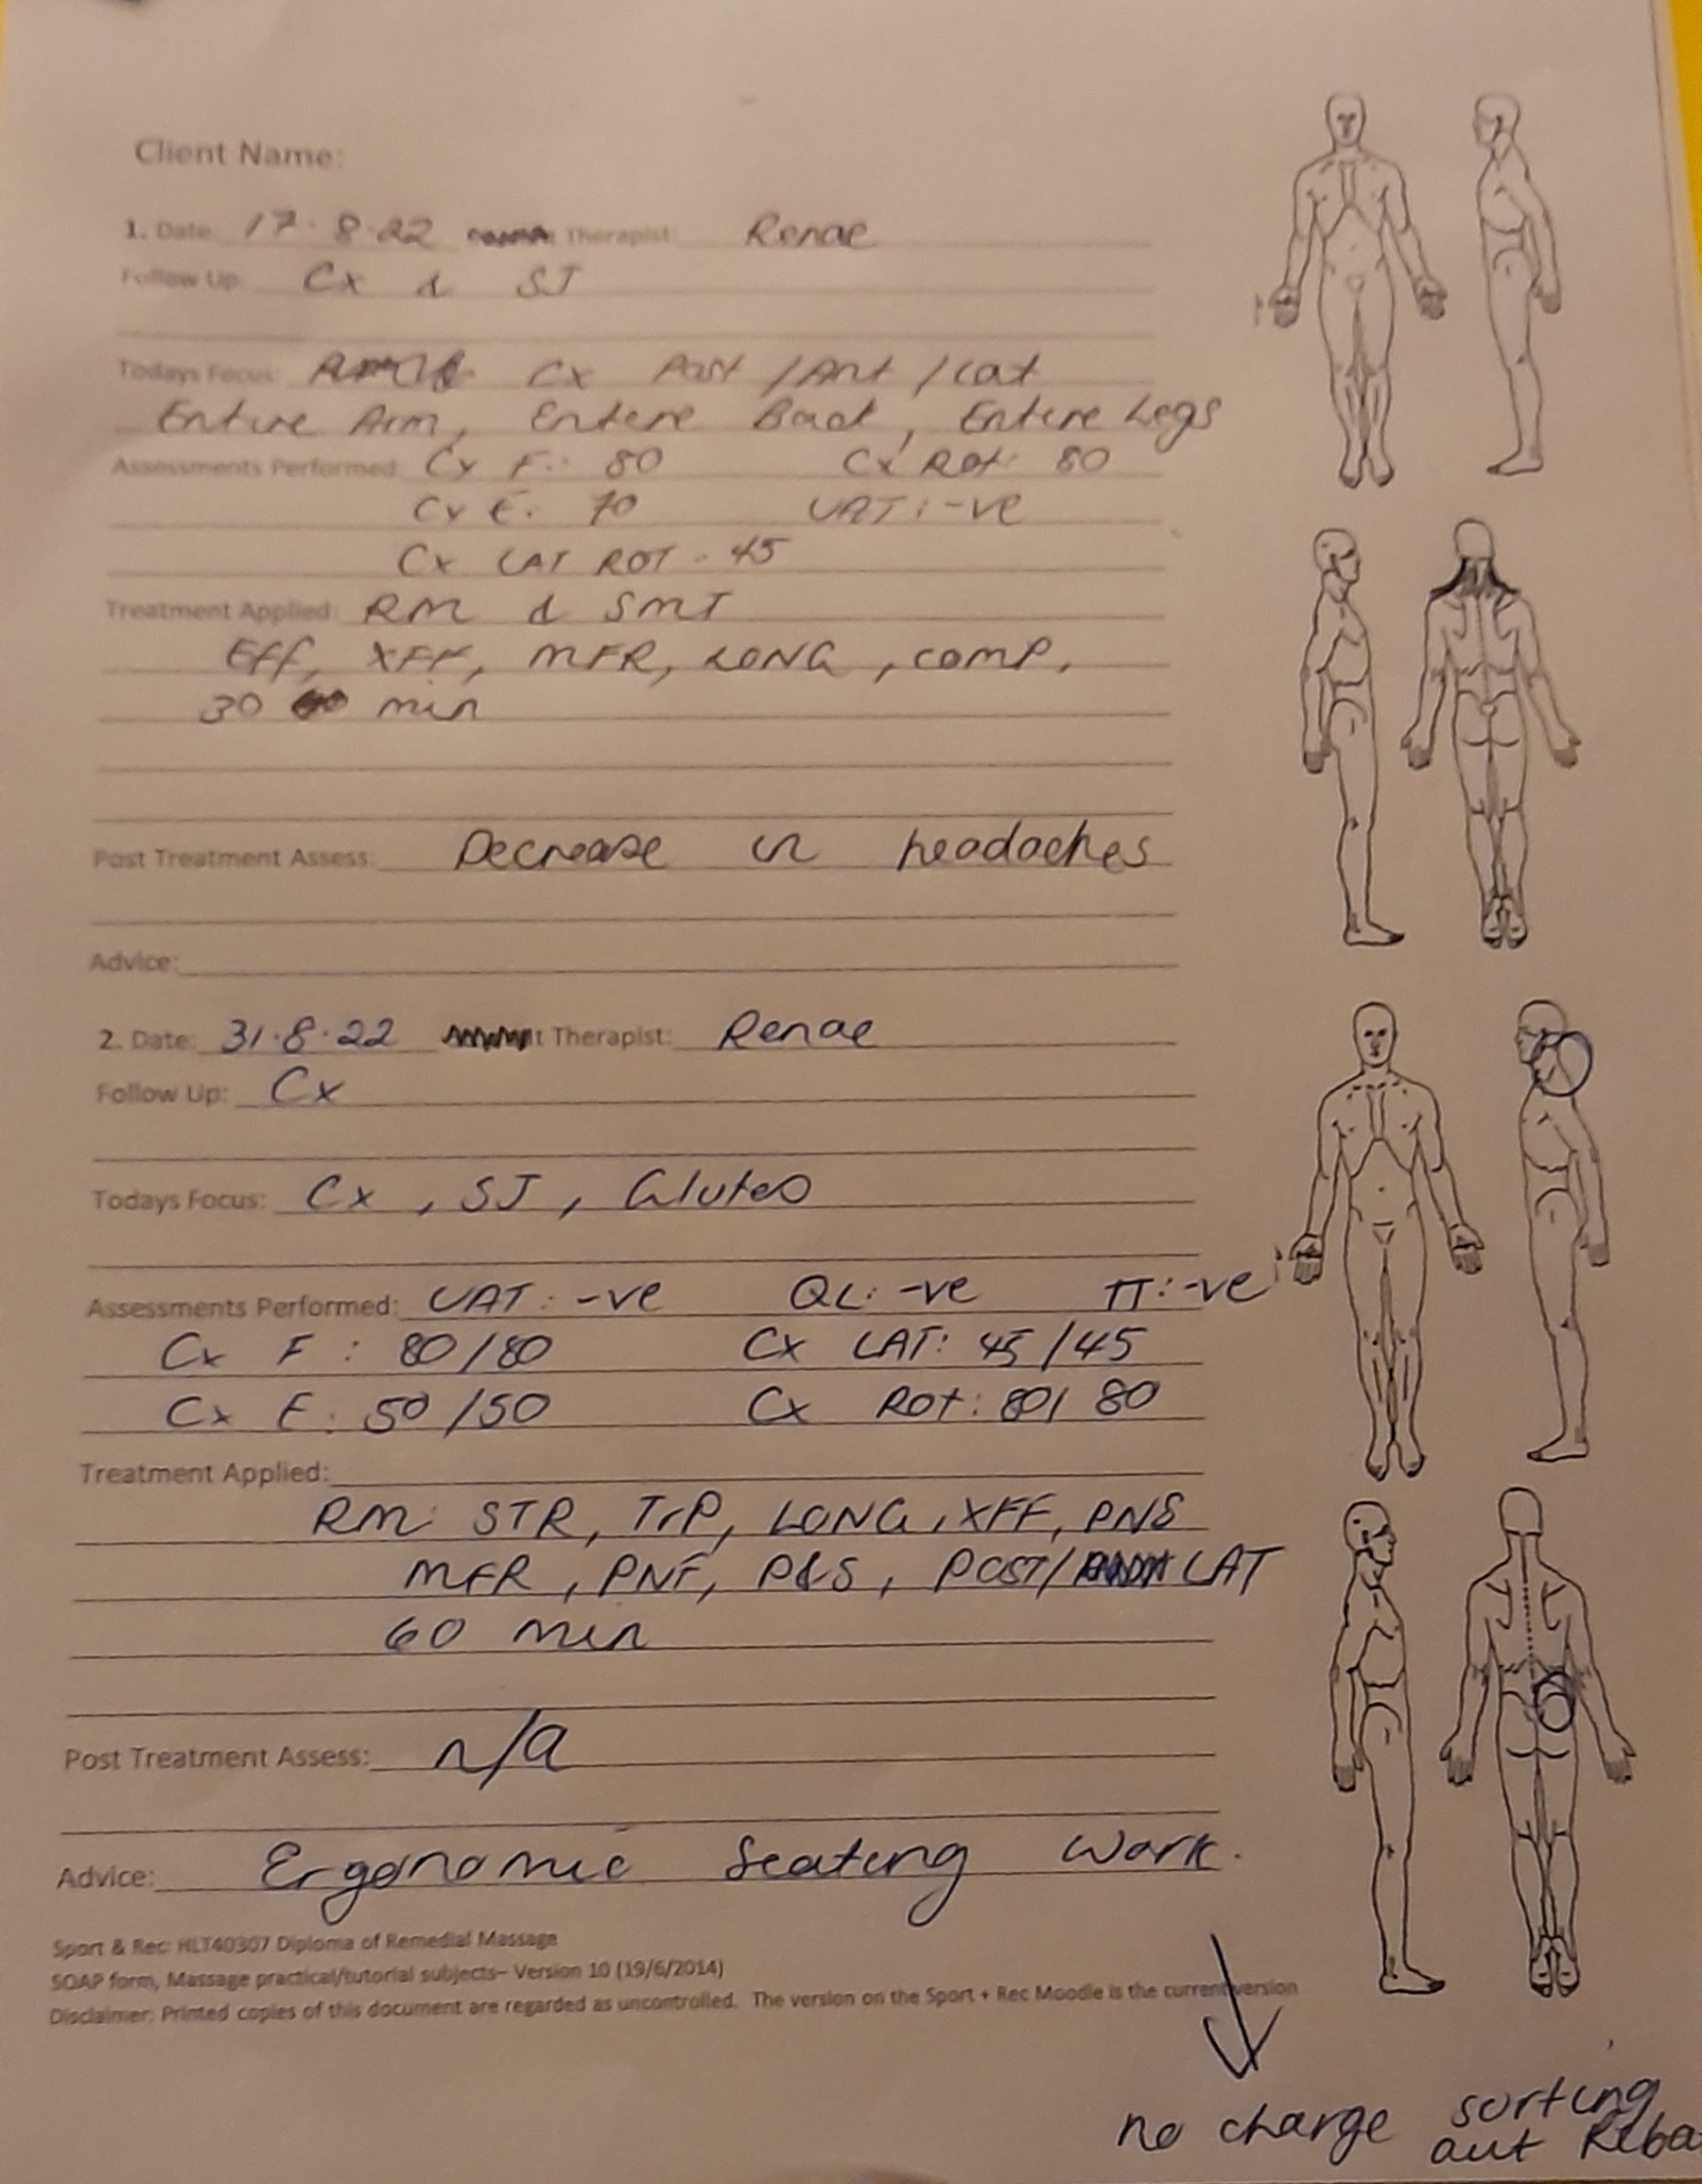 Client Name:
1. Date: 17.8.22 Therapist: Renae
Follow Up: Cx & SJ
Todays Focus: Cx Post / Ant / Lat
Entire Arm, Entere Back, Entere Legs
Assessments Performed: Cx F: 80 Cx Rot: 80
Cx E: 70 VAT: -ve
Cx LAT ROT - 45
Treatment Applied: RM & SMT
Eff, XFF, MFR, LONG, COMP,
30 min
Post Treatment Assess: Decrease in headaches
Advice:
2. Date: 31.8.22 t Therapist: Renae
Follow Up: Cx
Todays Focus: Cx, SJ, Glutes
Assessments Performed: VAT: -ve QL: -ve TT: -ve
Cx F: 80/80 Cx LAT: 45/45
Cx E: 50/50 Cx Rot: 80/80
Treatment Applied:
RM: STR, TrP, LONG, XFF, PNS
MFR, PNF, P&S, POST/ LAT
60 min
Post Treatment Assess: n/a
Advice: Ergonomic Seating Work.
Sport & Rec: HLT40307 Diploma of Remedial Massage
SOAP form, Massage practical/tutorial subjects– Version 10 (19/6/2014)
Disclaimer: Printed copies of this document are regarded as uncontrolled. The version on the Sport + Rec Moodle is the current version
no charge sorting
out Reba